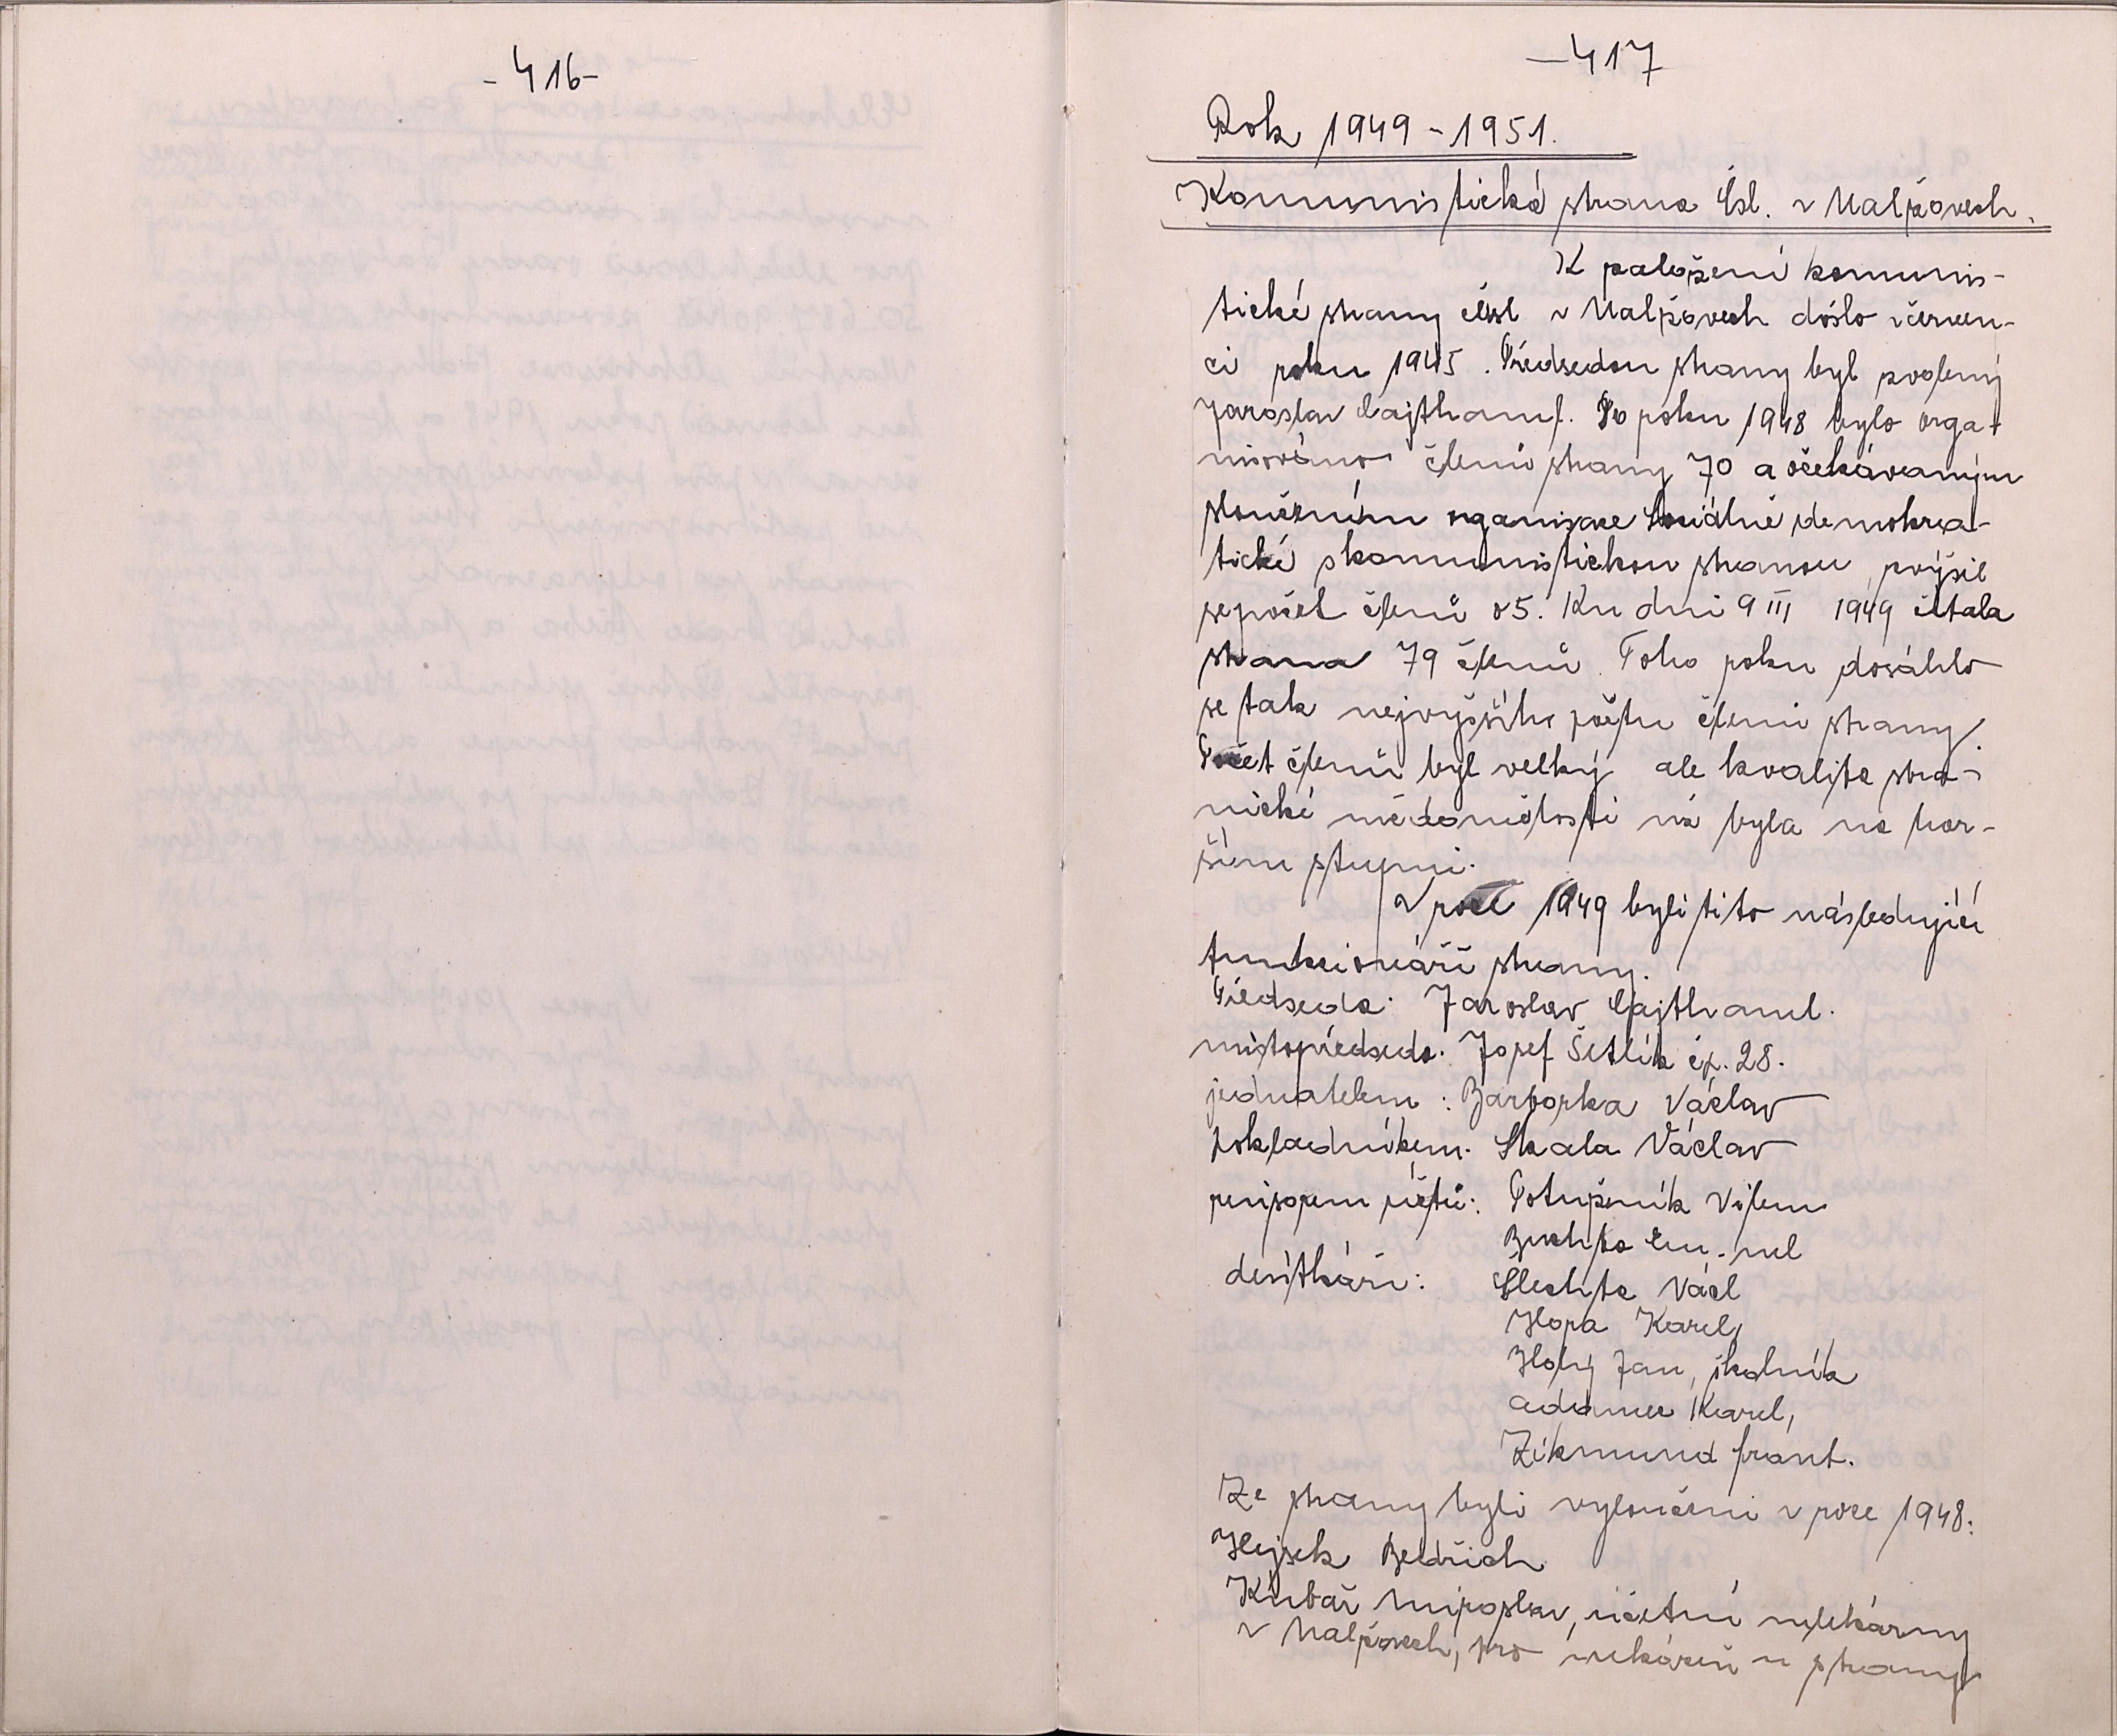 -416-
-417
Rok 1949-1951.
Komunistická strana Čsl. v Malšovech.
K založení komunis-
tické strany čsl v Malšovech došlo v červen-
ci roku 1945. Předsedou strany byl zvolený
Jaroslav Cajthaml. Do roku 1948 bylo orga-
nisováno členů strany 70 a očekávaným
sloučením organisace Sociálně demokra-
tické s komunistickou stranou, zvýšil
se počet členů o 5. Ku dni 9 III 1949 čítala
strana 79 členů. Toho roku dosáhlo
se tak nejvyššího počtu členů strany.
Počet členů byl velký ale kvalita stra-
nické uvědomělosti byla na hor-
ším stupni.
V roce 1949 byli tito následující
funkcionáři strany.
Předseda: Jaroslav Cajthaml.
místopředseda: Josef Šetlík čp. 28.
jednatelem: Barborka Václav
pokladníkem: Skala Václav
revisorem účtů: Potužník Vilém
desítkáři: Šlechta Václ
Karel,
Jan, školník
Adamec Karel,
Zikmund Frant.
Ze strany byli vyloučeni v roce 1948:
Hejsek Bedřich
Miroslav, účetní mlékárny
v Malšovech, pro nekázeň u strany